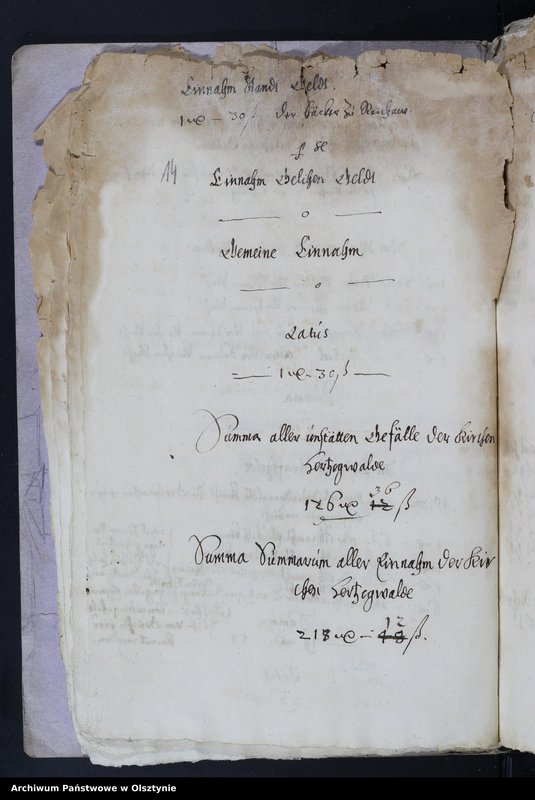 Einnahm Standt Geldt
1 mℓ – 30 ß der bäcker zu Reichaw.
p se
14
Einnahm Gelihen Geldt
Gemeine Einnahm
Latus
1 mℓ – 30 ß
Summa aller unstätten Gefälle der Kirchen
Hertzogwalde
126 mℓ 36 ß
Summa Summarum aller Einnahm der Kir
chen Hertzogwalde
218 mℓ – 12 ß.
Archiwum Państwowe w Olsztynie